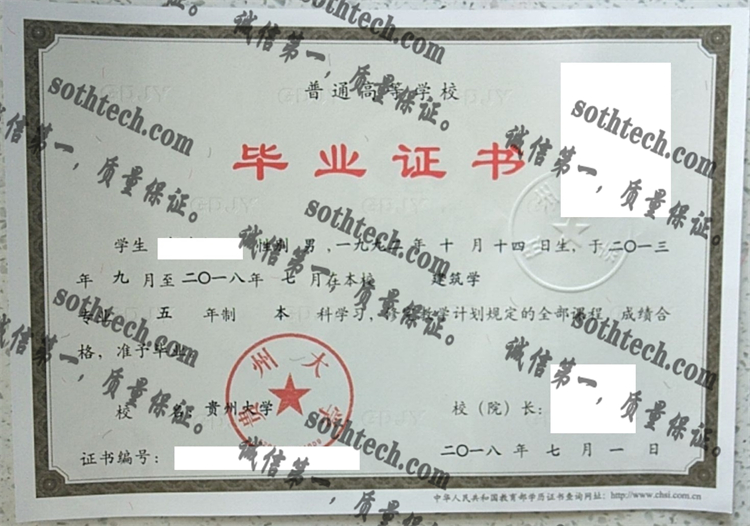 普通高等学校
毕业证书
学生 性别 男,一九九二年 十 月 十四 日生,于二〇一三
年 九 月至 二〇一八年 七 月在本校 建筑学
专业 五 年制 本 科学习,修完教学计划规定的全部课程,成绩合
格,准予毕业
贵州大学
校 名:贵州大学 校(院)长:
证书编号: 二〇一八 年 七 月 一 日
中华人民共和国教育部学历证书查询网址:http://www.chsi.com.cn
sothtech.com
诚信第一,质量保证。
sothtech.com
诚信第一,质量保证。
sothtech.com
诚信第一,质量保证。
sothtech.com
诚信第一,质量保证。
sothtech.com
诚信第一,质量保证。
sothtech.com
诚信第一,质量保证。
sothtech.com
诚信第一,质量保证。
sothtech.com
诚信第一,质量保证。